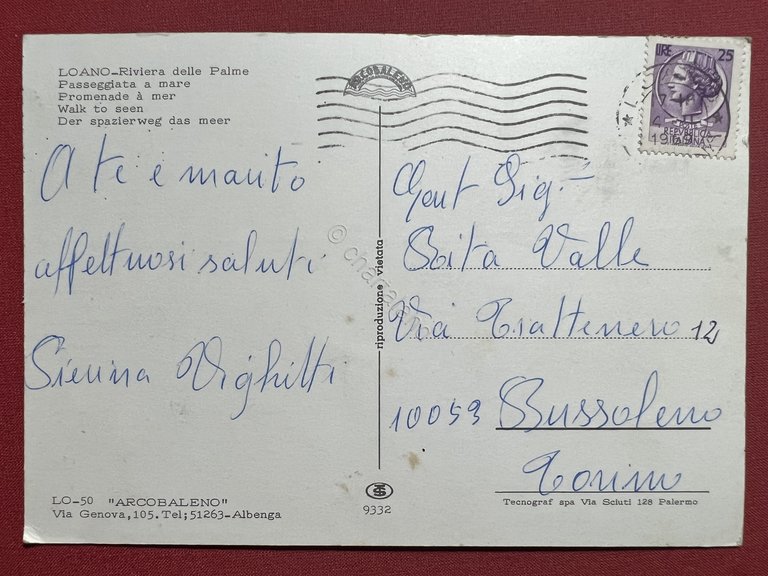 LOANO-Riviera delle Palme
Passeggiata a mare
Promenade à mer
Walk to seen
Der spazierweg das meer
ARCOBALENO
LIRE 25
REPUBBLICA
ITALIANA
1969
A te e marito
affettuosi saluti
Gent Sig.
Rita Valle
Via Trattenero 12
10053 Bussoleno
Torino
riproduzione vietata
LO-50 "ARCOBALENO"
Via Genova, 105. Tel; 51263-Albenga
9332
Tecnograf spa Via Sciuti 128 Palermo